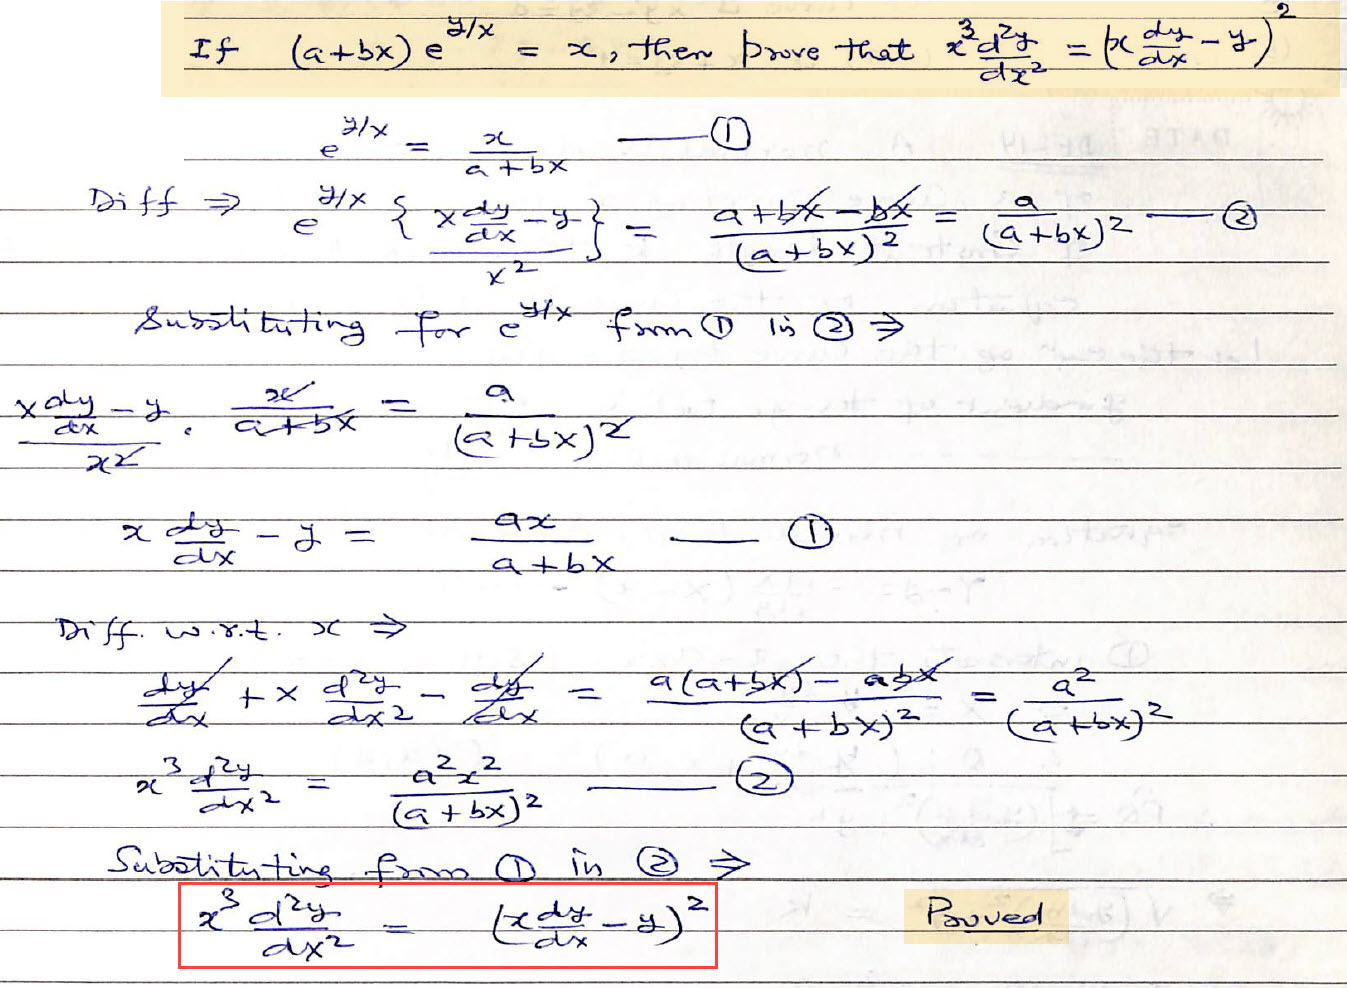 If (a+bx) e^{y/x} = x, then prove that x^3 d^2y/dx^2 = (x dy/dx - y)^2
e^{y/x} = x/(a+bx) —— ①
Diff ⇒ e^{y/x} { (x dy/dx - y)/x^2 } = (a+bx-bx)/(a+bx)^2 = a/(a+bx)^2 —— ②
Substituting for e^{y/x} from ① in ② ⇒
(x dy/dx - y)/x^2 . x/(a+bx) = a/(a+bx)^2
x dy/dx - y = ax/(a+bx) —— ①
Diff. w.r.t. x ⇒
dy/dx + x d^2y/dx^2 - dy/dx = (a(a+bx) - abx)/(a+bx)^2 = a^2/(a+bx)^2
x^3 d^2y/dx^2 = a^2x^2/(a+bx)^2 —— ②
Substituting from ① in ② ⇒
x^3 d^2y/dx^2 = (x dy/dx - y)^2 Proved